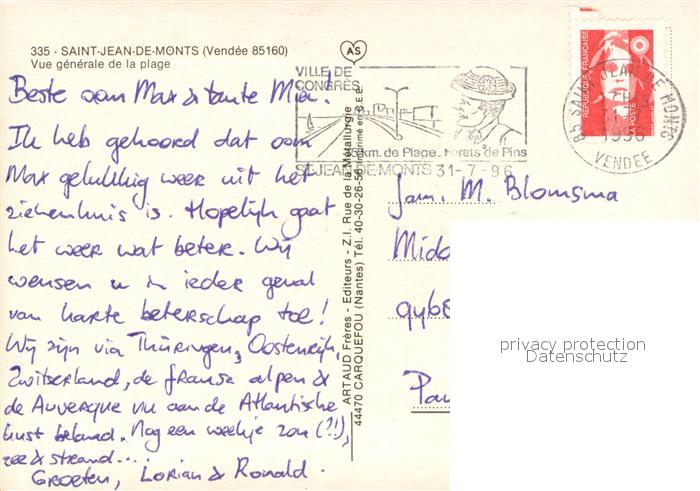 335 - SAINT-JEAN-DE-MONTS (Vendée 85160)
Vue générale de la plage
AS
Beste oom Max & tante Mia!
Ik heb gehoord dat oom
Max gelukkig weer uit het
ziekenhuis is. Hopelijk gaat
het weer wat beter. Wij
wensen u in ieder geval
van harte beterschap toe!
Wij zijn via Thüringen, Oostenrijk,
Zwitserland, de franse alpen &
de Auvergne nu aan de Atlantische
kust beland. Nog een weekje zon (?!),
zee & strand...
Groeten, Lorian & Ronald.
ARTAUD Frères - Editeurs - Z.I. Rue de la Métallurgie
44470 CARQUEFOU (Nantes) Tél. 40-30-26-56 Imprimé en C.E.E.
VILLE DE
CONGRÈS
km. de Plage. Forêts de Pins
ST-JEAN-DE-MONTS 31-7-96
REPUBLIQUE FRANÇAISE
LA POSTE
85 SAINT JEAN DE MONTS
1996
VENDEE
Fam. M. Blomsma
Midd
Pa
privacy protection
Datenschutz